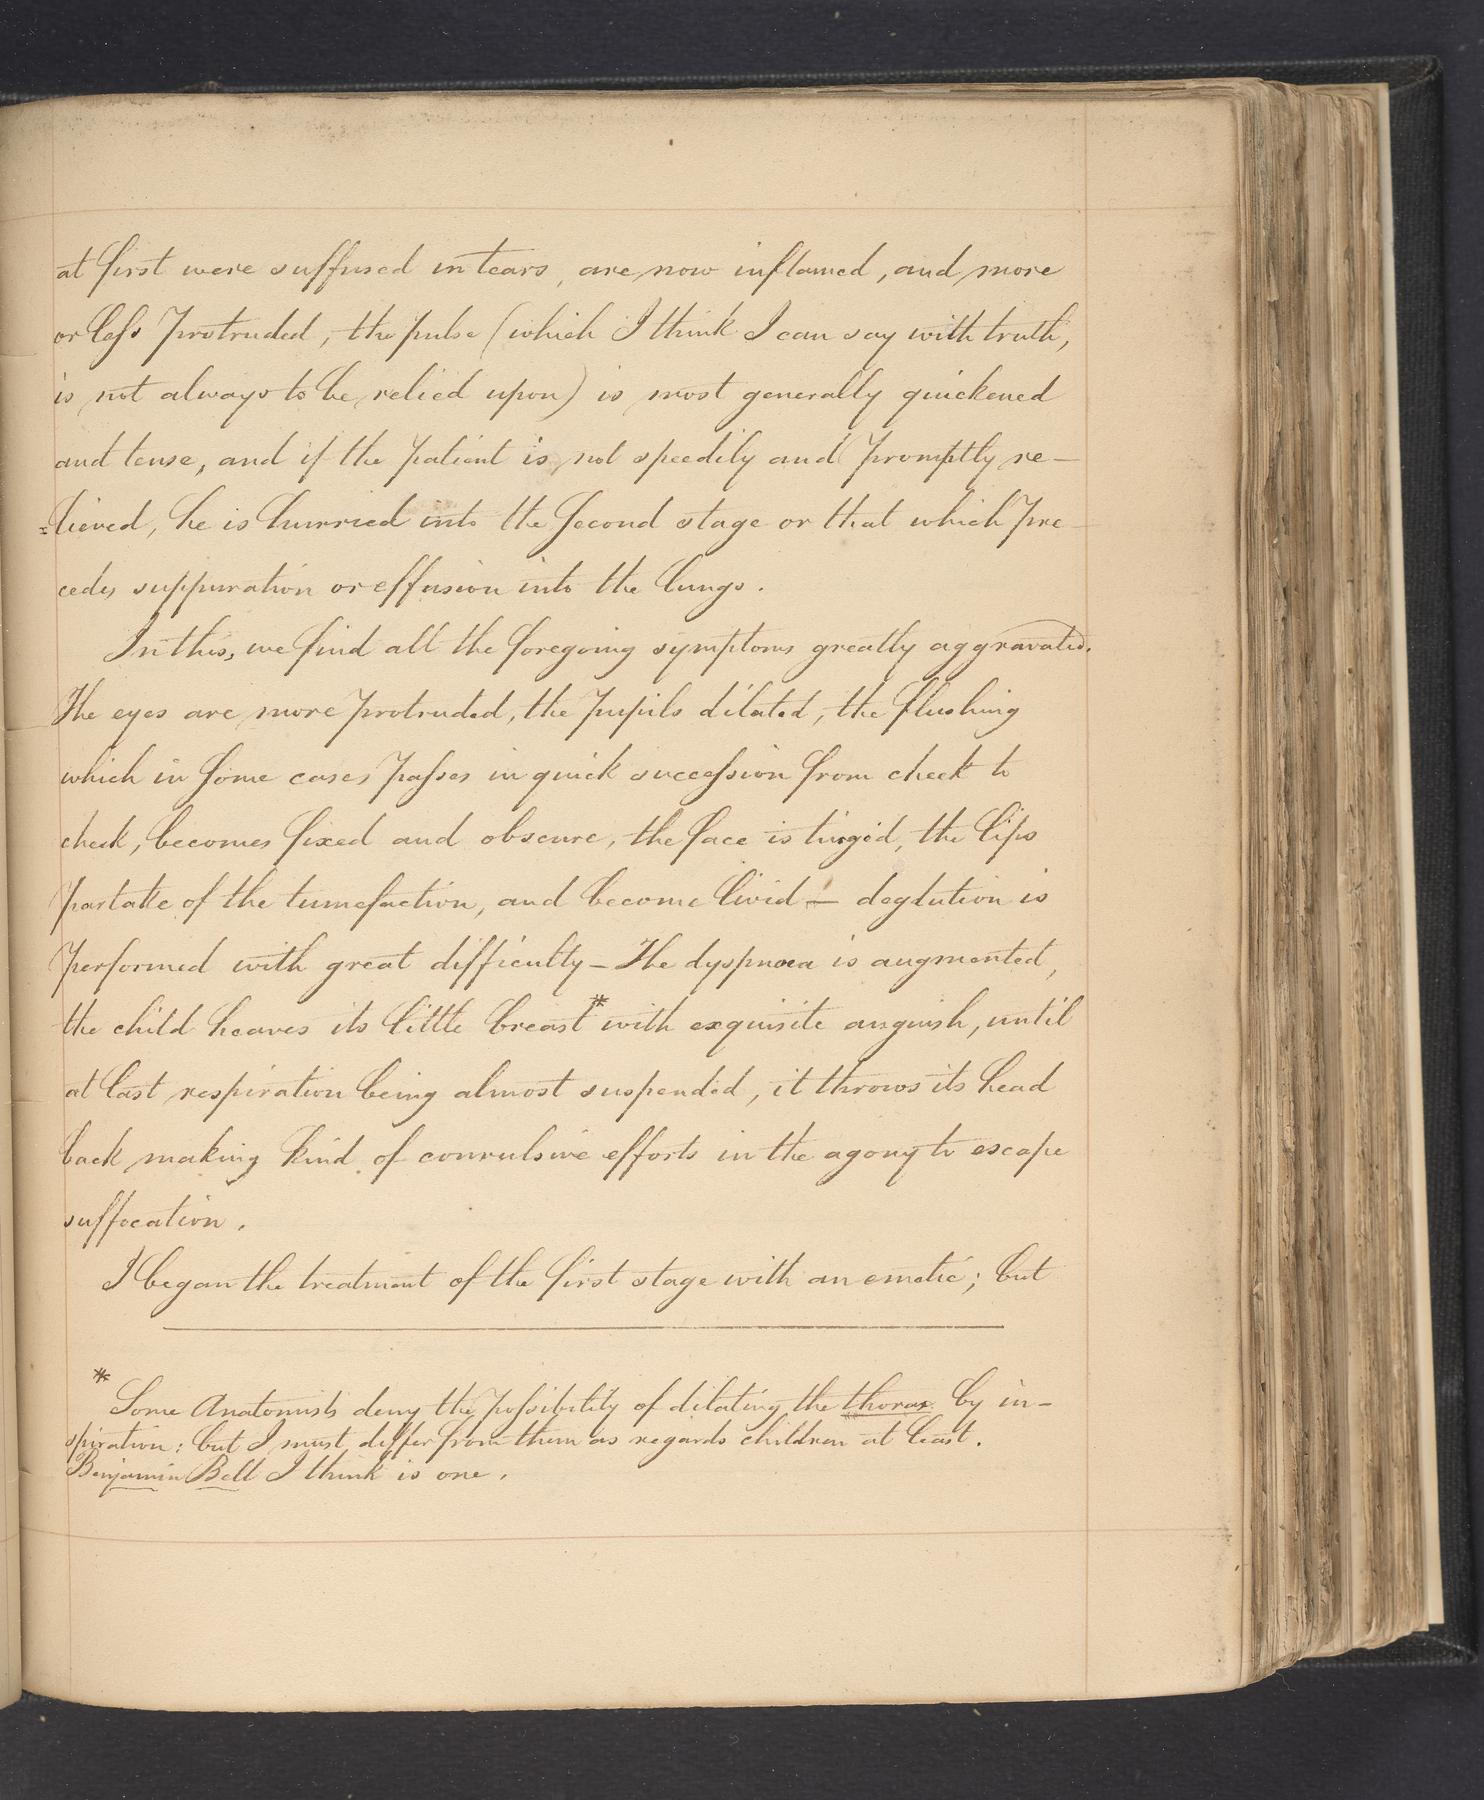 at first were suffused in tears, are now inflamed, and more
or less protruded, the pulse (which I think I can say with truth,
is not always to be relied upon) is most generally quickened
and tense, and if the patient is not speedily and promptly re–
=lieved, he is hurried into the second stage or that which pre–
cedes suppuration or effusion into the lungs.
In this, we find all the foregoing symptoms greatly aggravated.
The eyes are more protruded, the pupils dilated, the flushing
which in some cases passes in quick succession from cheek to
cheek, becomes fixed and obscure, the face is turgid, the lips
partake of the tumefaction, and become livid — deglution is
performed with great difficulty – The dyspnœa is augmented,
the child heaves its little breast* with exquisite anguish, until
at last respiration being almost suspended, it throws its head
back making kind of convulsive efforts in the agony to escape
suffocation.
I began the treatment of the first stage with an emetic; but
* Some Anatomists deny the possibility of dilating the thorax by in–
spiration: but I must differ from them as regards children at least.
Benjamin Bell I think is one.